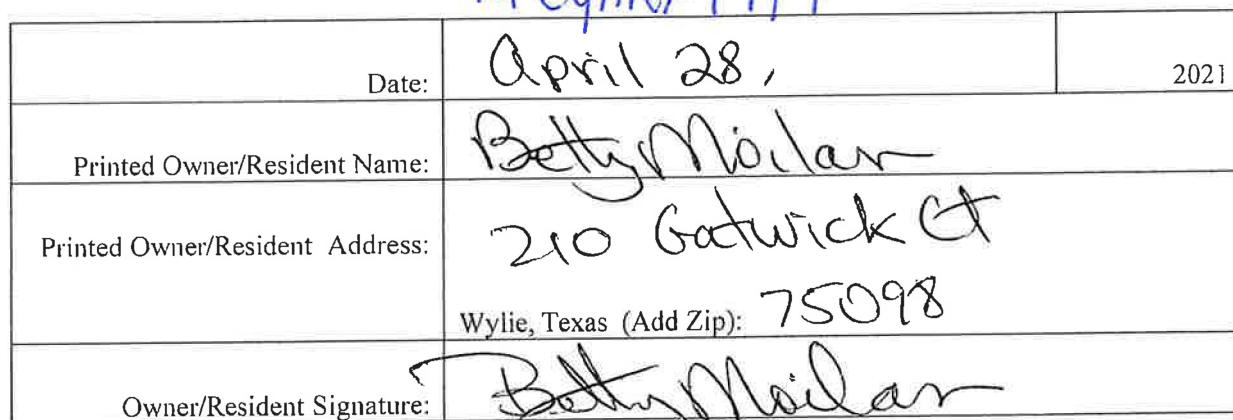 Date: April 28, 2021
Printed Owner/Resident Name: Betty Moilan
Printed Owner/Resident Address: 210 Gatwick Ct
Wylie, Texas (Add Zip): 75098
Owner/Resident Signature: Betty Moilan